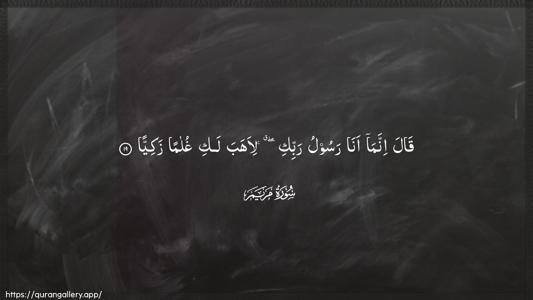 قَالَ اِنَّمَاۤ اَنَا رَسُوْلُ رَبِّكِ ۖۗ لِاَهَبَ لَـكِ غُلٰمًا زَكِيًّا ١٩
سُوْرَةُ مَرْيَم
https://qurangallery.app/